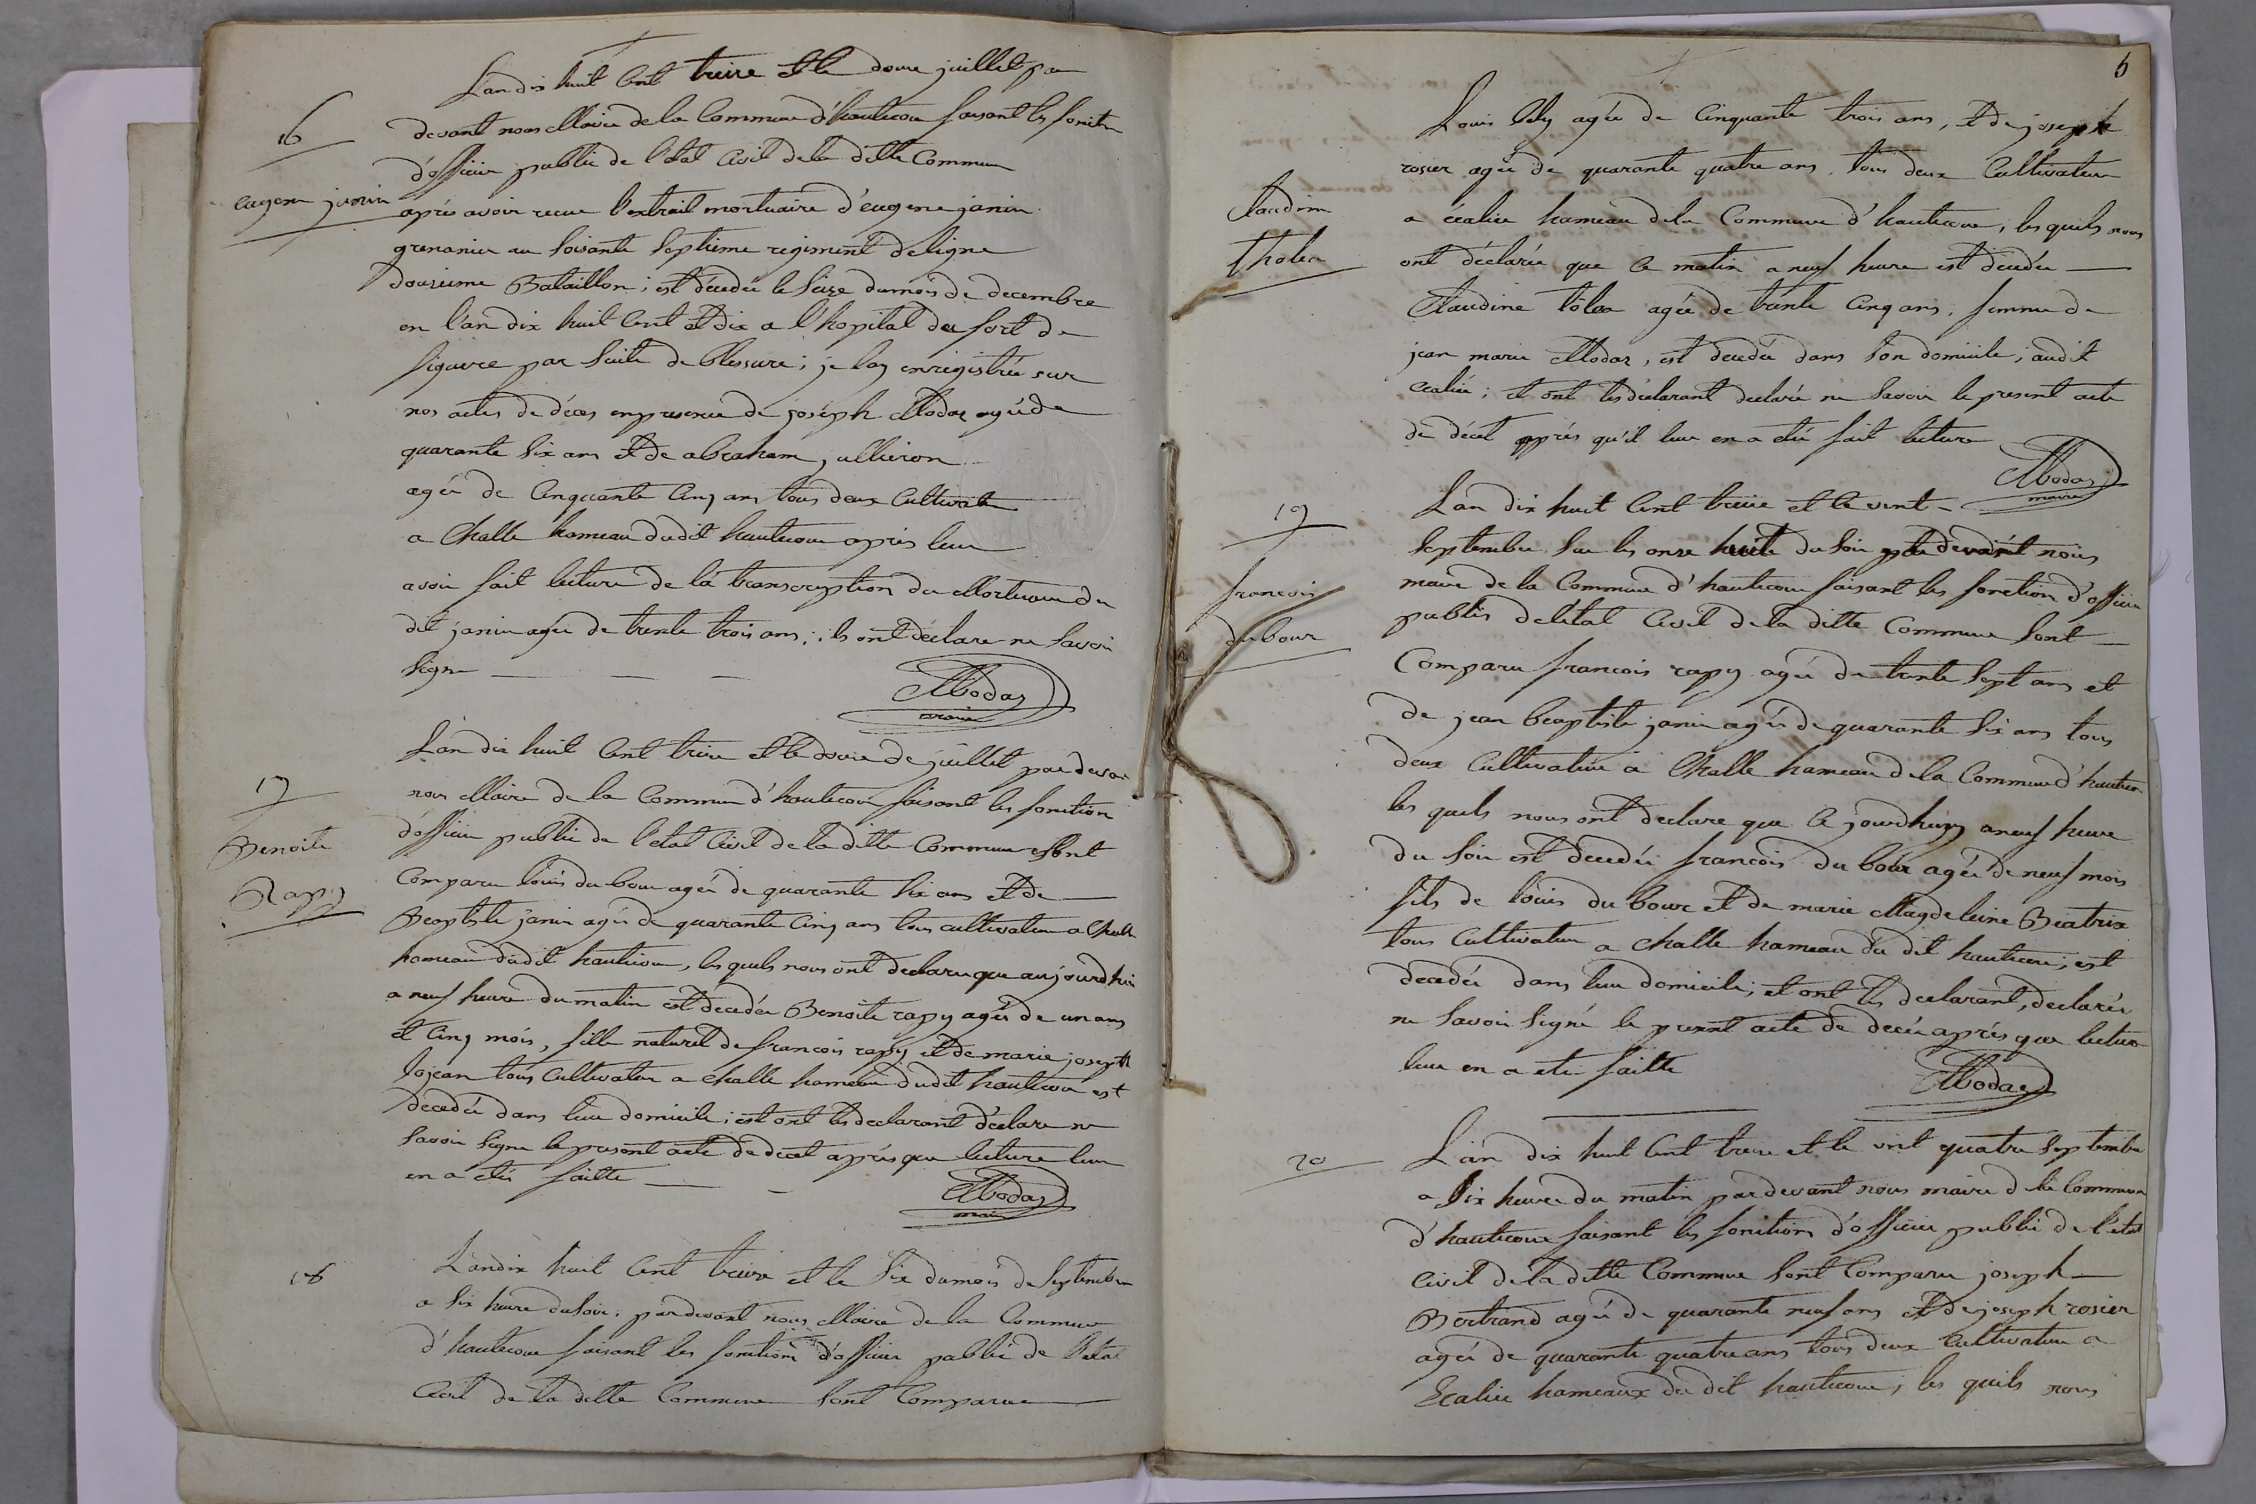 L'an dix huit Cent treize et le douze juillet par
devant nous Maire de la Commune d'hautecour faisant les fonction
d'officier public de l'etat Civil de la ditte Commune
après avoir recue l'extrait mortuaire d'eugene janin
grenanier au soisante septieme regiment de ligne
Douzieme Bataillon ; est décedé le seize du mois de decembre
en l'an dix huit Cent et dix a l'hopital du fort de
figuere par suite de blessure ; je lay enregistrée sur
nos actes de déces en presence de joseph Modaz agé de
quarante six ans et de abraham jullieron
agée de Cinquante Cinq ans tous deux Cultivate
a Challe hameau dudit hautecour après leur
avoir fait lecture de la transcription du Mortuaire du
dit janin agée de trente trois ans ; ils ont déclare ne savoir
signe
Modaz
maire
16
eugene janin
L'an dix huit Cent treize et le douze de juillet par devan
nous Maire de la Commune d'hautecour faisant les fonction
d'officier public de l'etat Civil de la ditte Commune sont
Comparu louis du bour agée de quarante six ans et de
Beaptiste janin agée de quarante Cinq ans tous cultivateur a Challe
hameau dudit hautecour, les quels nous ont declaru que aujourdhui
a neuf heure du matin est decedée Benoite rapy agée de un ans
et Cinq mois, fille naturel de francois rapy et de marie joseph
lojean tous Cultivateur a challe hameau dudit hautecour est
decedée dans leur domicile ; est ont les declarant déclare ne
savoir signe le present acte de decet après que lecture leur
en a etée faitte
Modaz
maire
17
Benoite
Rapy
L'an dix huit Cent treize et le six du mois de Septembre
a six heure du soir ; par devant nous Maire de la Commune
d'hautecour faisant les fonctions d'officier public de l'etat
Civil de la ditte Commune sont Comparue
18
6
Louis agée de Cinquante trois ans, et de joseph
rosier agée de quarante quatre ans, tous deux Cultivateur
a écalier hameau de la Commune d'hautecour, les quels nous
ont déclarée que ce matin a neuf heure est décedée
Claudine tolea agée de trente Cinq ans, femme de
jean marie Modaz, est decedée dans son domicile, audit
ecalier ; et ont les déclarant declarée ne savoir le present acte
de décet après qu'il leur en a etée fait lecture
Modaz
maire
Claudine
tholea
L'an dix huit Cent treize et le vint
Septembre sur les onze heure du soir par devant nous
maire de la Commune d'hautecour faisant les fonction d'officier
publis de l'état Civil de la ditte Commune sont
Comparu francois rapy agée de trente sept ans et
de jean beaptiste janin agée de quarante six ans tous
deux Cultivateur a Challe hameau de la Commune d'hautecour
les quels nous ont declare que ce jourdhuy a neuf heure
du soir est decedée francois du bour agée de neuf mois
fils de louis du bour et de marie Magdeleine Beatrix
tous Cultivateur a challe hameau du dit hautecour ; est
decedée dans leur domicile ; et ont les declarant, declarée
ne savoir signé le present acte de decée après que lecture
leur en a etée faitte
Modaz
19
francois
du bour
L'an dix huit Cent treize et le vint quatre Septembre
a six heure du matin par devant nous maire de la Commune
d'hautecour faisant les fonctions d'officier public de l'etat
Civil de la ditte Commune sont Comparu joseph
Bertrand agée de quarante neuf ans et de joseph rosier
agée de quarante quatre ans tous deux Cultivateur a
Ecalier hameaux du dit hautecour ; les quels nous
20